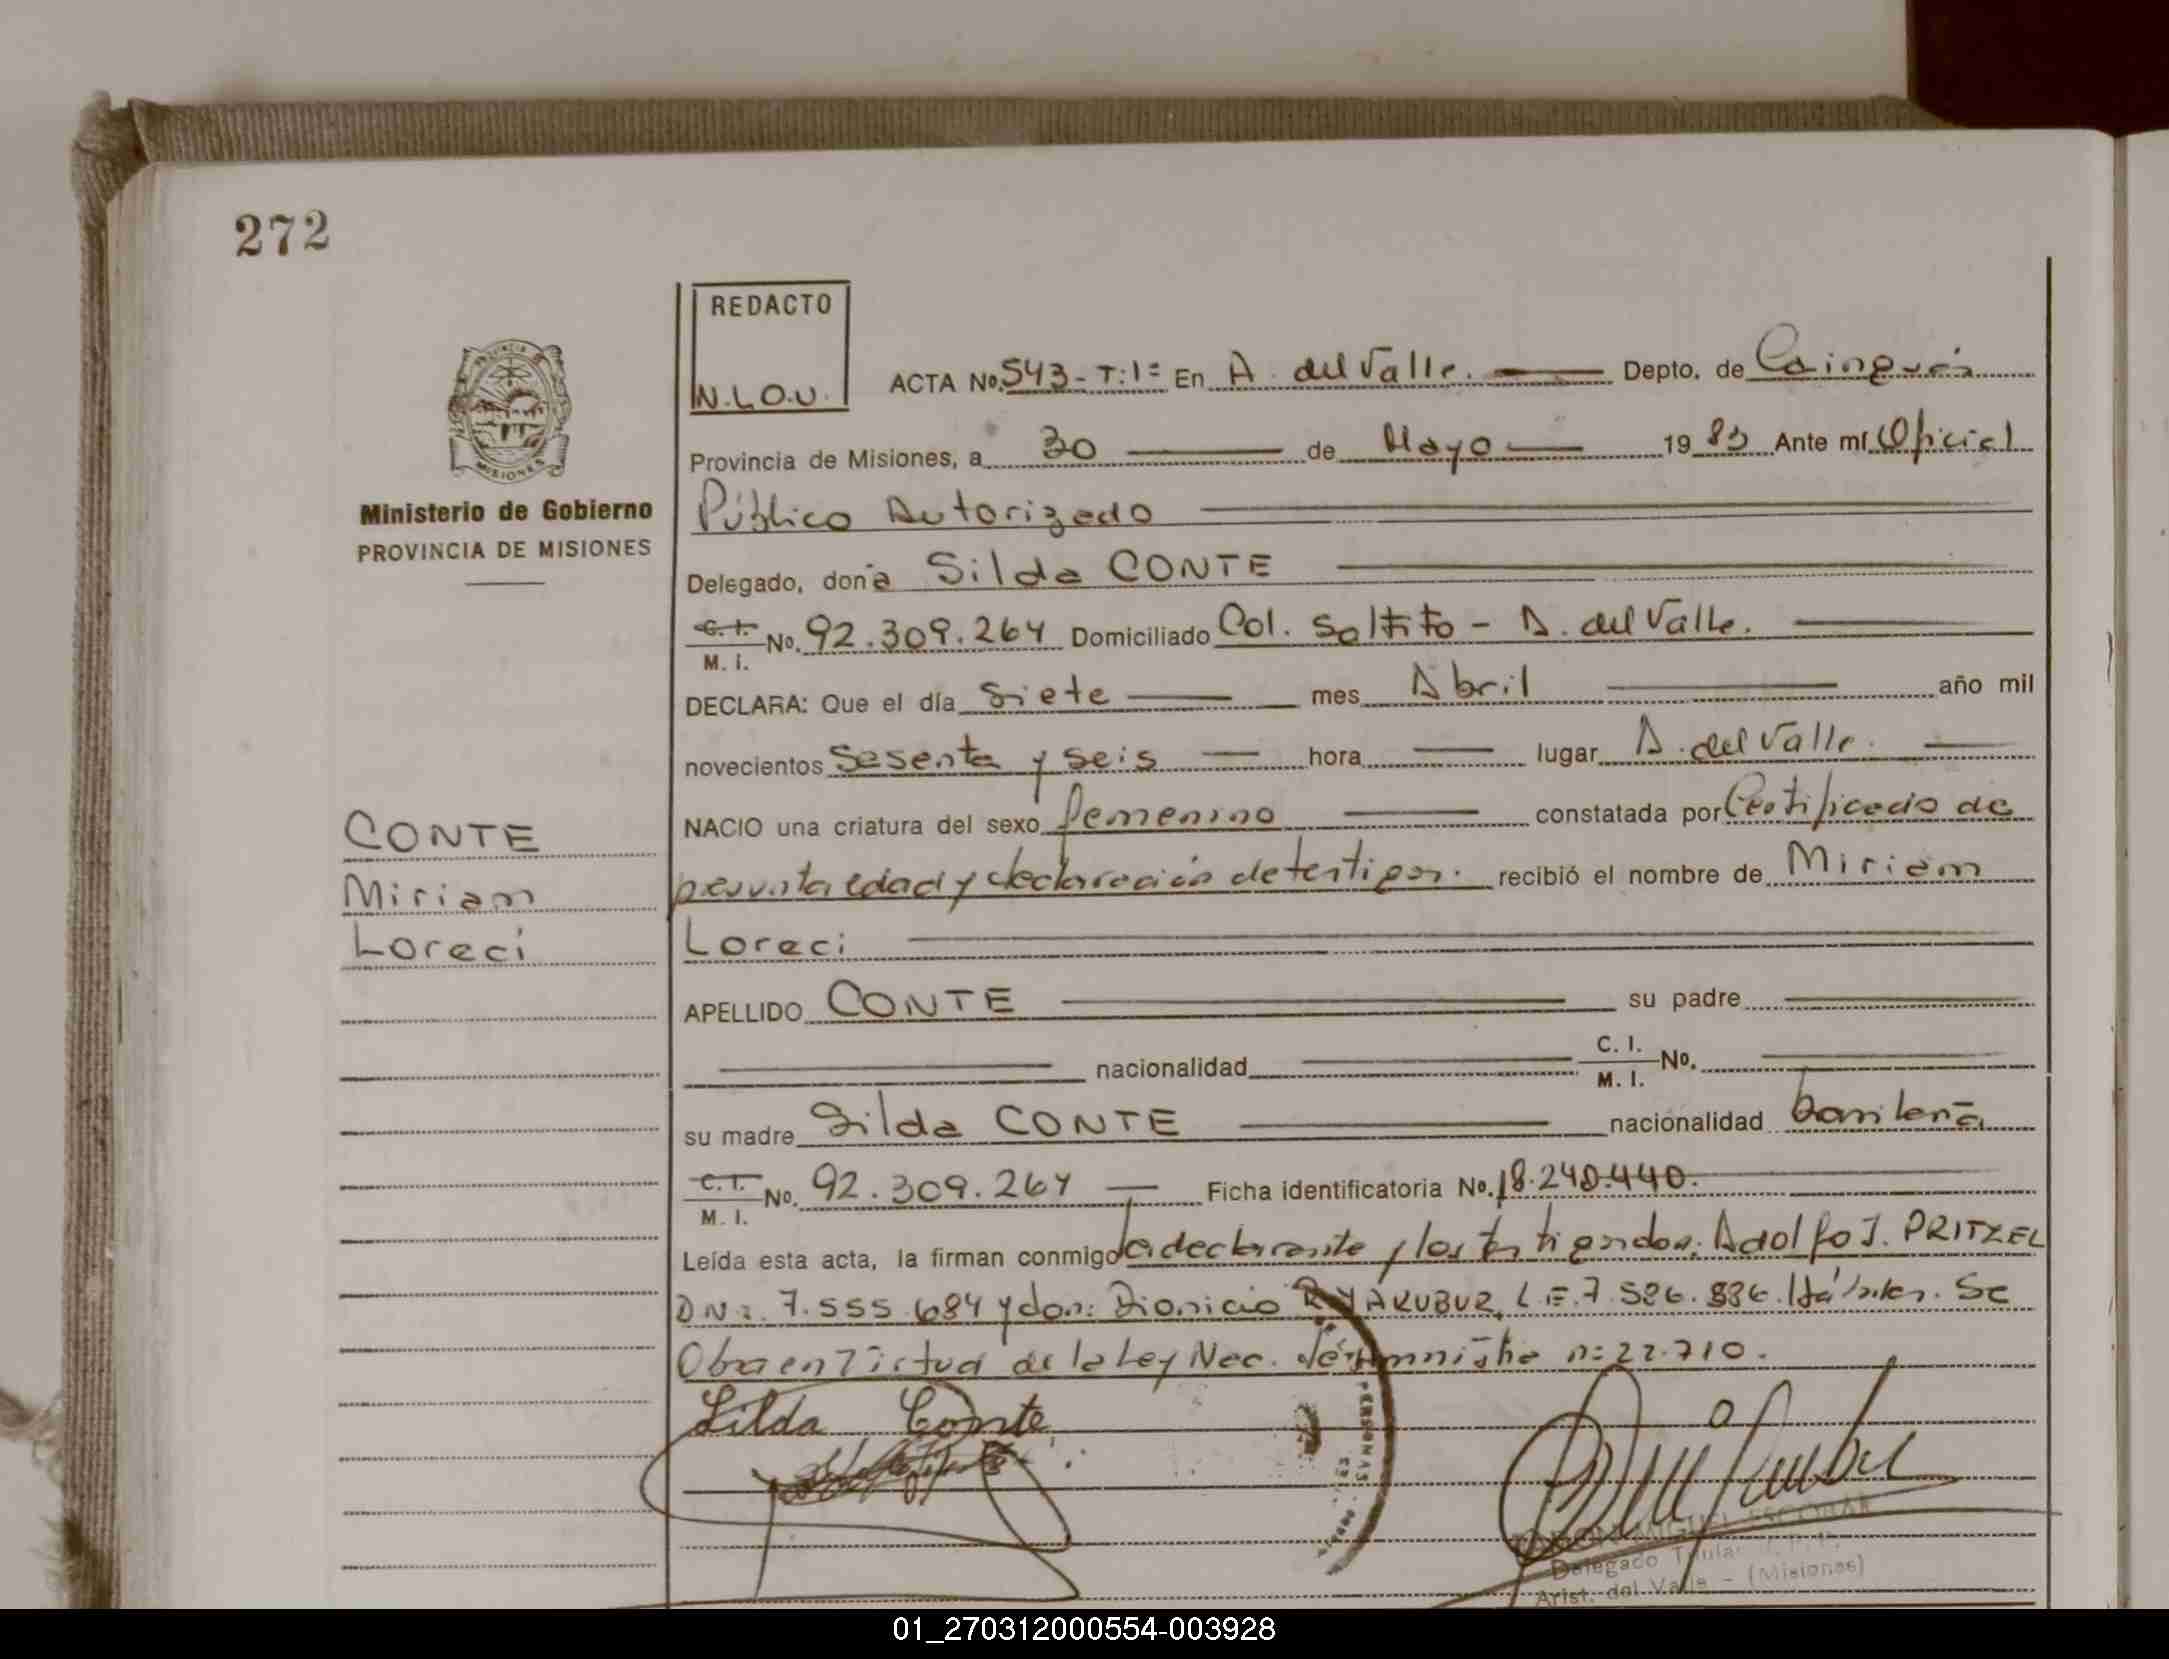 272
REDACTO
N.L.O.U.
ACTA No. 543-T:1= En A. del Valle. Depto. de Cainguás
Provincia de Misiones, a 30 de Mayo 1983 Ante mí Oficial
Público Autorizado
PROVINCIA
MISIONES
Ministerio de Gobierno
PROVINCIA DE MISIONES
Delegado, doña Silda CONTE
C. I. M. I. No. 92.309.264 Domiciliado Col. Saltito - A. del Valle.
DECLARA: Que el día siete mes Abril año mil
novecientos sesenta y seis hora lugar A. del Valle.
NACIO una criatura del sexo femenino constatada por Certificado de
presunta edad y declaración de testigos. recibió el nombre de Miriam
Loreci
CONTE
Miriam
Loreci
APELLIDO CONTE su padre
nacionalidad C. I. M. I. No.
su madre Silda CONTE nacionalidad brasileña
C. I. M. I. No. 92.309.264 Ficha identificatoria No. 18.240.440.
Leída esta acta, la firman conmigo la declarante y los testigos don: Adolfo J. PRITZEL
DN: 7.555.684 y don: Dionicio YAKUBUR, L.E. 7.526.886. Hábiles. Se
Obra en Virtud de la Ley Nac. de Amnistía n: 22.710.
Silda Conte
PERSONAS
MIGUEL ESCOBAR
Delegado Titular
Arist. del Valle - (Misiones)
01_270312000554-003928